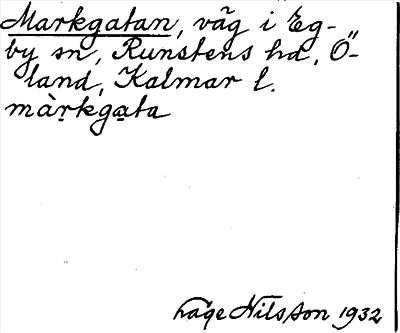 Markgatan, väg i Eg-
by sn, Runstens hd, Ö-
land, Kalmar l.
màṛkga̤ta
Nilsson 1932